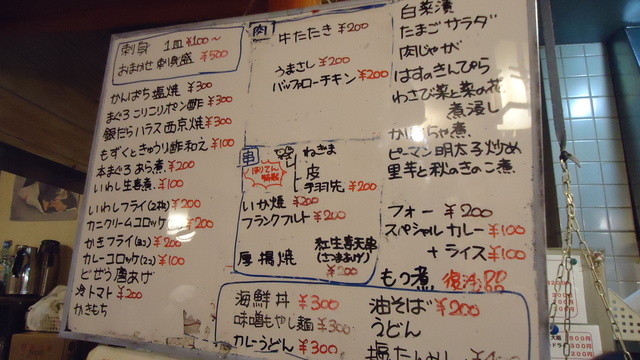 刺身 1皿 ¥100〜
おまかせ刺身盛 ¥500
かんぱち塩焼 ¥300
まぐろコリコリポン酢 ¥300
銀だらハラス西京焼 ¥300
もずくときゅうり酢和え ¥100
本まぐろあら煮 ¥200
いわし生姜煮 ¥100
いわしフライ(2枚) ¥200
カニクリームコロッケ ¥200
かきフライ(2コ) ¥200
カレーコロッケ(2コ) ¥100
どぜう唐あげ
冷トマト ¥200
かきもち
肉
牛たたき ¥200
うまさし ¥200
バッファローチキン ¥200
串
ねぎま
皮
手羽先 ¥200
いか焼 ¥200
フランクフルト ¥200
厚揚焼
紅生姜天串
(さつまあげ)
¥200
白菜漬
たまごサラダ
肉じゃが
はすのきんぴら
わさび菜と菜の花
煮浸し
かぼちゃ煮
ピーマン明太子炒め
里芋と秋のきのこ煮
フォー ¥200
スペシャルカレー ¥100
+ライス ¥100
もつ煮 復活
海鮮丼 ¥300
味噌もやし麺 ¥300
カレーうどん ¥300
油そば ¥200
うどん